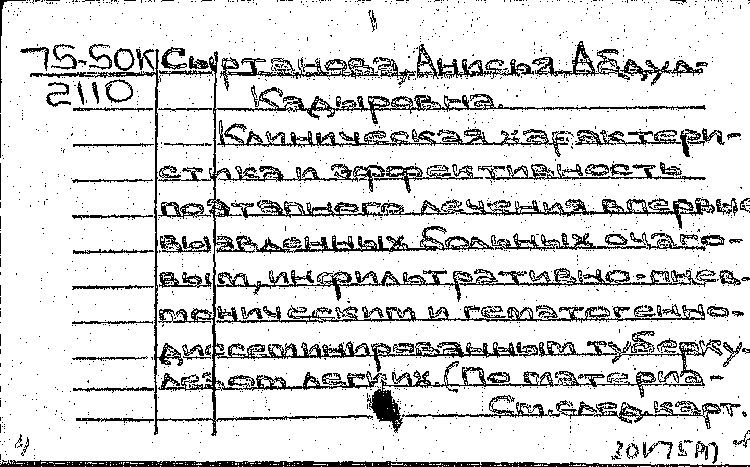 75-50К Сыртанова, Анисья Абдул-
2110 Кадыровна.
Клиническая характери-
стика и эффективность
поэтапного лечения впервые
выявленных больных очаго-
вым, инфильтративно-пнев-
моническим и гематогенно-
диссеминированным туберку-
лезом легких. (По материа-
См. след. карт.